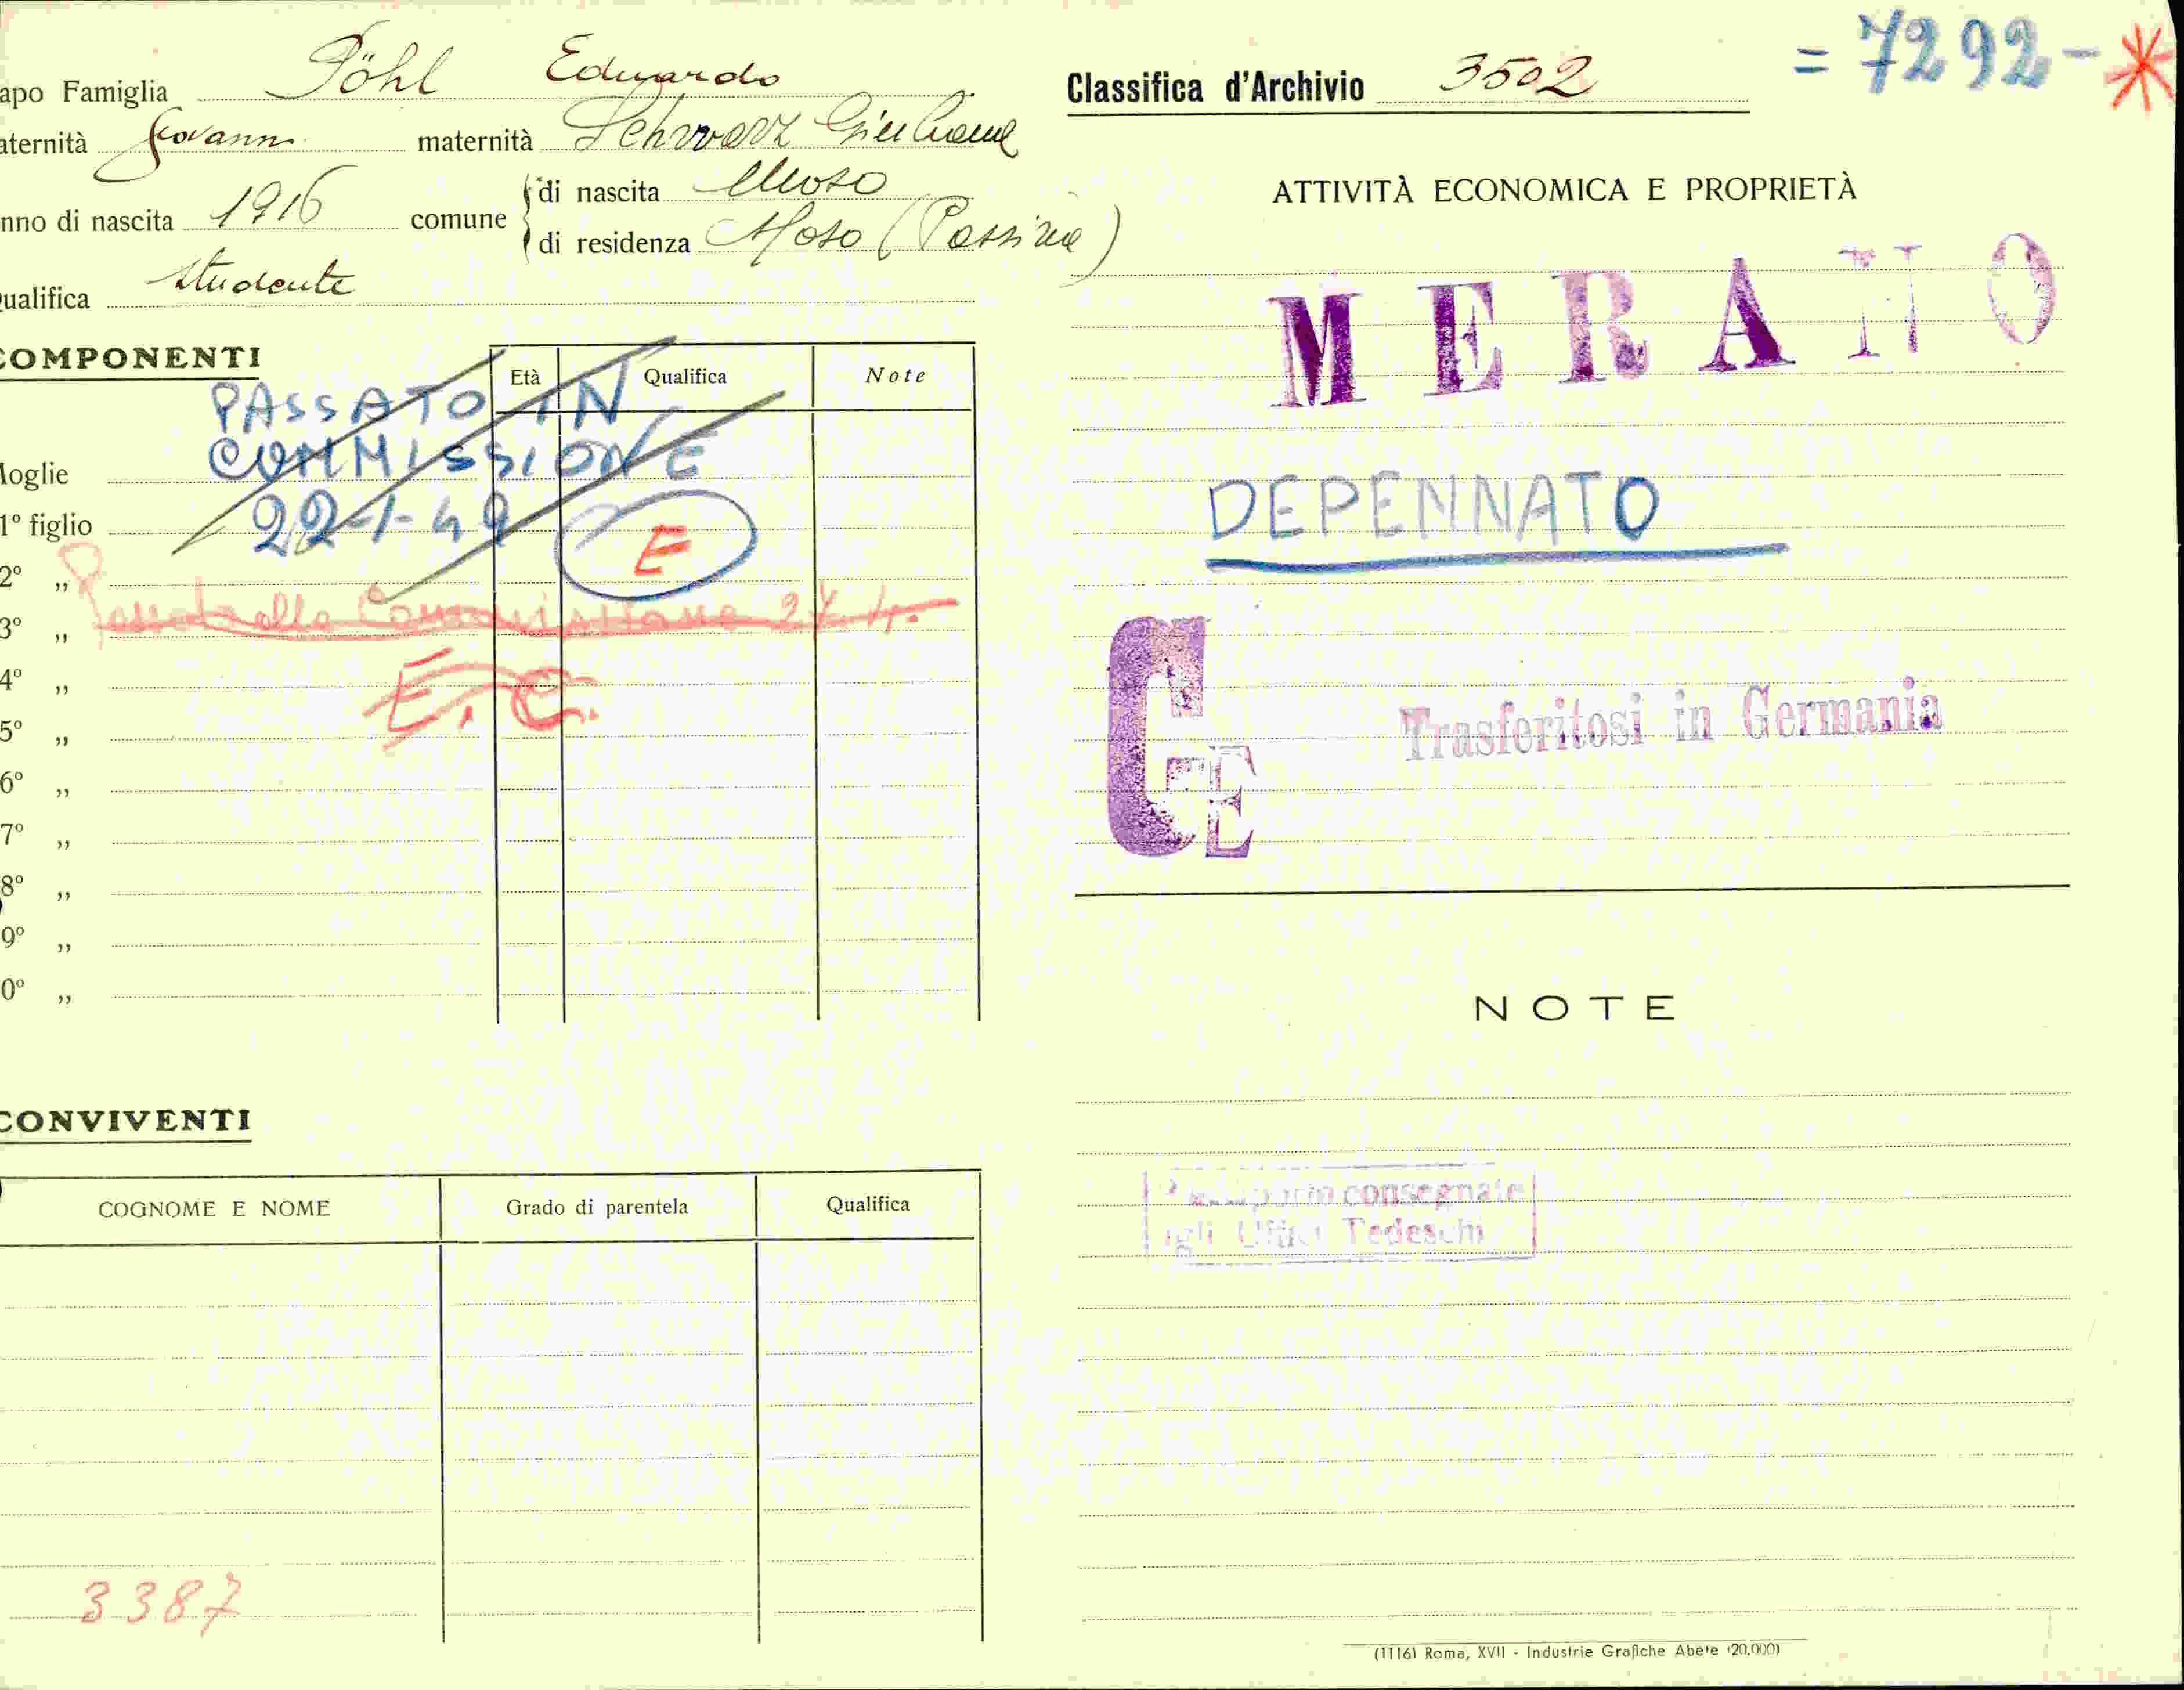 apo Famiglia Pöhl Eduardo
aternità Giovanni maternità Schwarz Giuliana
nno di nascita 1916 comune di nascita Moso
di residenza Moso (Passiria)
ualifica studente
COMPONENTI
Età Qualifica Note
PASSATO IN
COMMISSIONE
22-1-42
E
loglie
1° figlio
2° ,,
Passato alla Commissione 27.4.
3° ,,
4° ,,
E. C.
5° ,,
6° ,,
7° ,,
8° ,,
9° ,,
0° ,,
CONVIVENTI
COGNOME E NOME Grado di parentela Qualifica
3387
Classifica d'Archivio 3502
= 7292 - *
ATTIVITÀ ECONOMICA E PROPRIETÀ
MERANO
DEPENNATO
CE
Trasferitosi in Germania
NOTE
Passaporto consegnato
agli Uffici Tedeschi
(1116) Roma, XVII - Industrie Grafiche Abete (20.000)